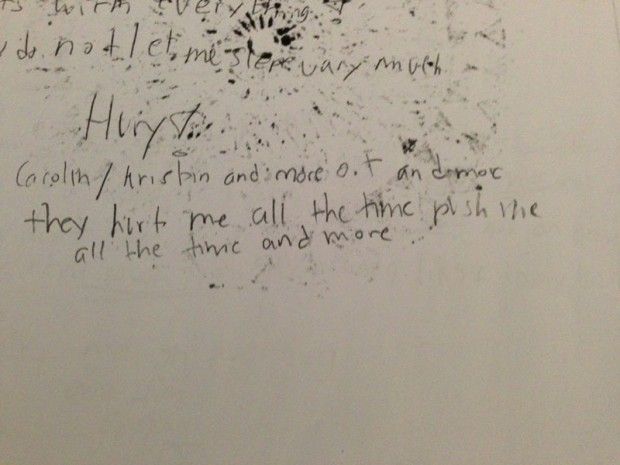 with everything
do not let me sleep vary much
Huryst
Carolin / kristin and more o.t and more
they hurt me all the time push me
all the time and more